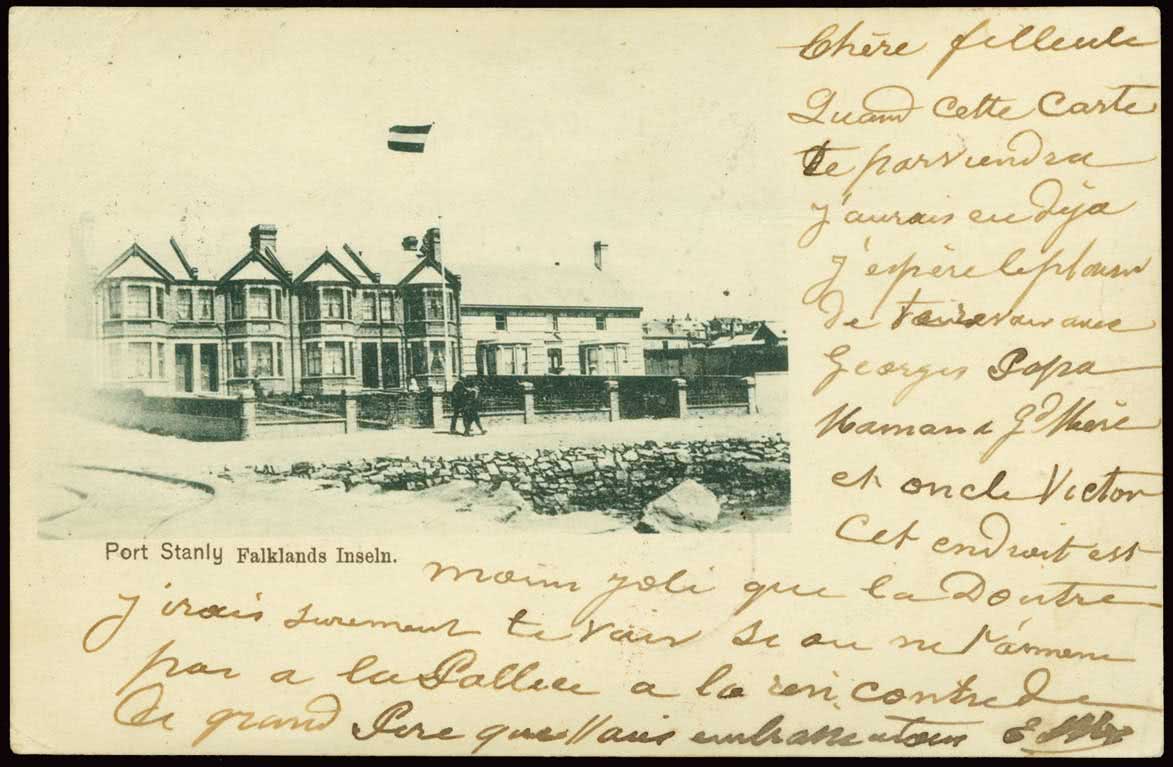 Chère filleule
Quand cette Carte
te parviendra
j'aurais eu déja
j'espère le plaisir
de voir avec
Georges Papa
Maman Gd Mère
et oncle Victor
Cet endroit est
Port Stanly Falklands Inseln.
moins joli que la Doutre
j'irais surement te voir si on ne t'amene
pas a la Pallice a la rencontre de
grand Pere que